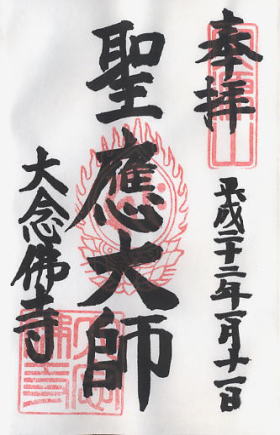 奉拝
平成二十二年一月十一日
聖應大師
大念佛寺